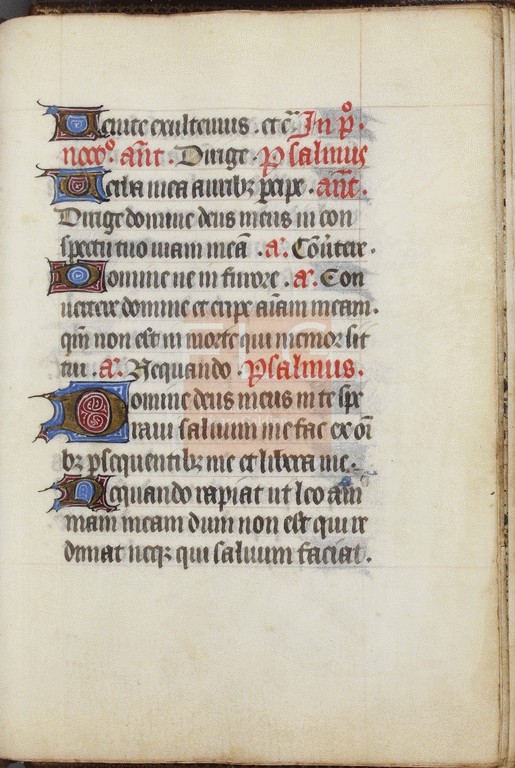 Venite exultemus . et c̄ . In p̊.
nocō. an̄t . Dirige . Psalmus
Verba mea auribꝫ ꝑcipe . an̄t .
Dirige domine deus meus in con
spectu tuo uiam meā . a᷑. Cōūtere .
Domine ne in furore . a᷑. Con
uertere domine et eripe aīam meam .
qm̄ non est in morte qui memor sit
tui . a᷑. Nequando . Psalmus .
Domine deus meus in te spe
raui saluum me fac ex oī
bꝫ ꝑsequentibꝫ me et libera me .
Nequando rapiat ut leo aīm
mam meam dum non est qui re
dimat neqꝫ qui saluum faciat .